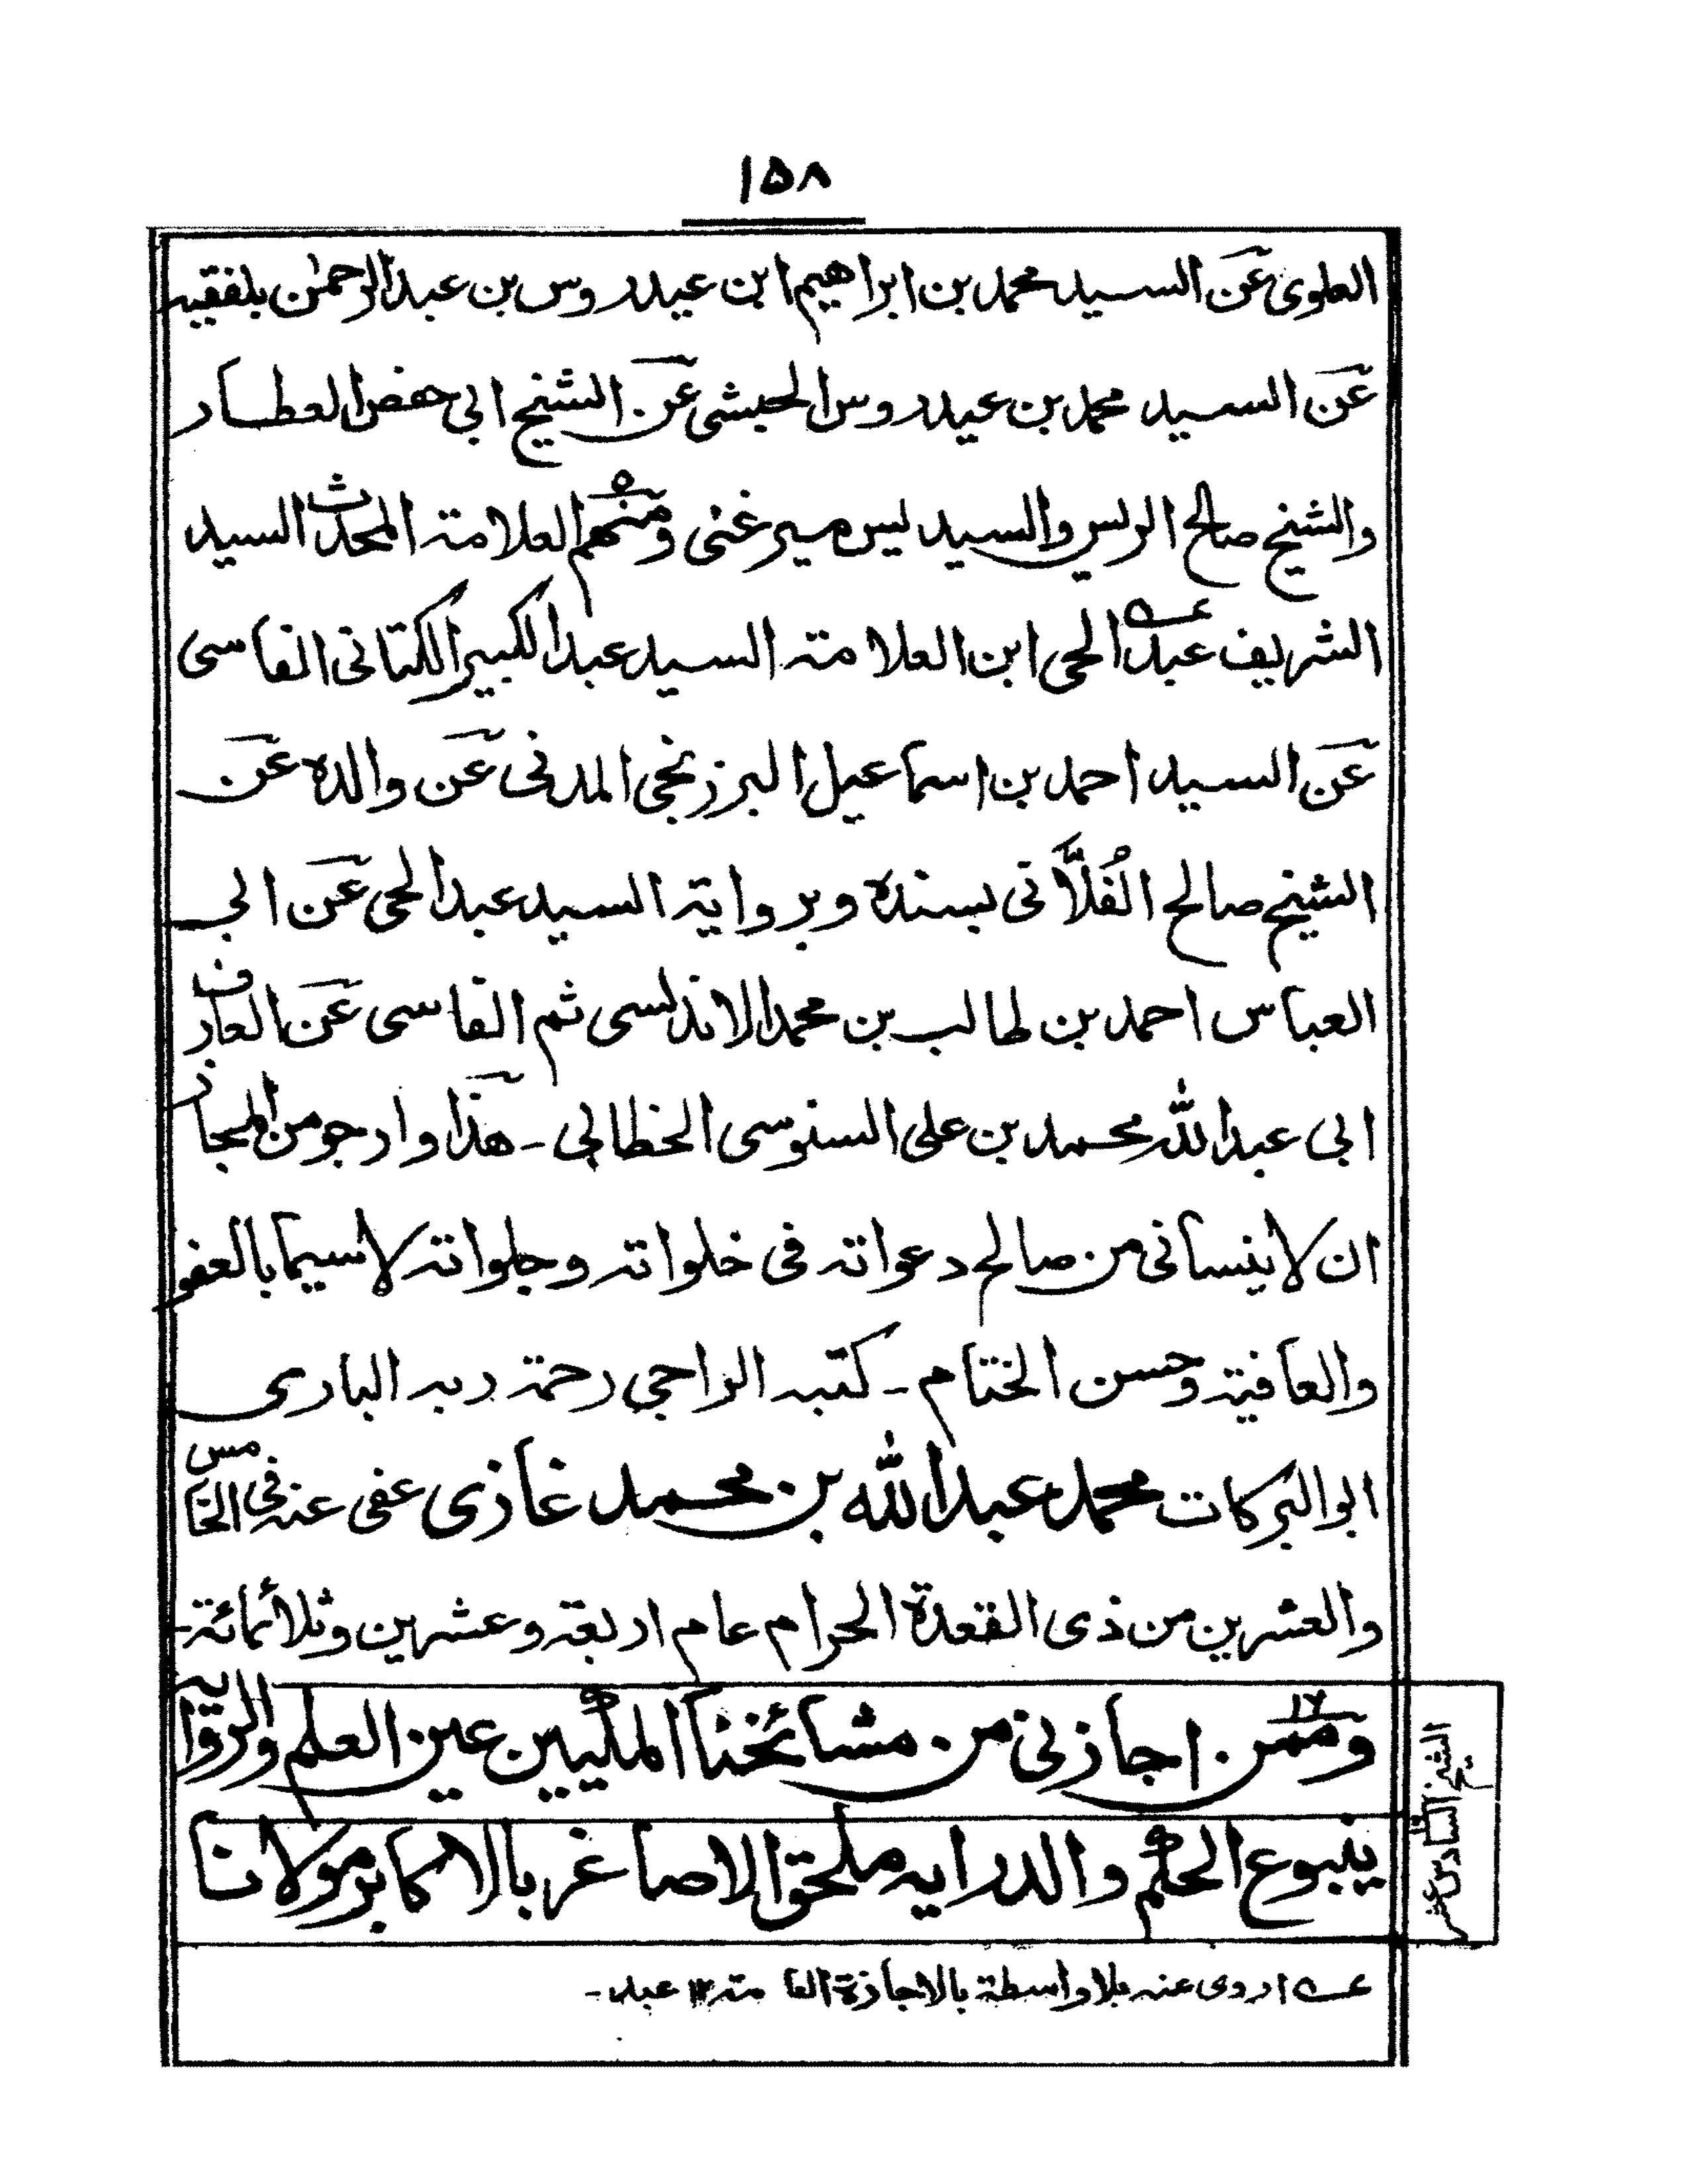 ١٥٨
العلوى عن السيد محمد بن ابراهيم ابن عيدروس بن عبد الرحمٰن بلفقيه
عن السيد محمد بن عيدروس الحبشى عن الشيخ ابى حفص العطار
والشيخ صالح الريس والسيد يٰس ميرغنى ومنهم العلامة المحدث السيد
الشريف عبد الحى ابن العلامة السيد عبد الكبير الكتانى الفاسى
عن السيد احمد بن اسماعيل البرزنجى المدنى عن والده عن
الشيخ صالح الفُلَّانى بسنده وبرواية السيد عبد الحى عن ابى
العباس احمد بن طالب بن محمد الاندلسى ثم الفاسى عن العارف
ابى عبد الله محمد بن على السنوسى الخطابى ـ هذا وارجو من المجاز
ان لا ينسانى من صالح دعواته فى خلواته وجلواته لاسيما بالعفو
والعافية وحسن الختام ـ كتبه الراجى رحمة ربه البارى
ابو البركات محمد عبد الله بن محمد غازى عفى عنه فى الخامس
والعشرين من ذى القعدة الحرام عام اربعة وعشرين وثلاثمائة ـ
وممن اجازنى من مشائخنا المكيين عين العلم والرواية
١٧
ينبوع الحلم والدراية ملحق الاصاغر بالاكابر مولانا
الشيخ السادس عشر
عــه اروى عنه بلا واسطة بالاجازة العامة ١٢ عبد ـ